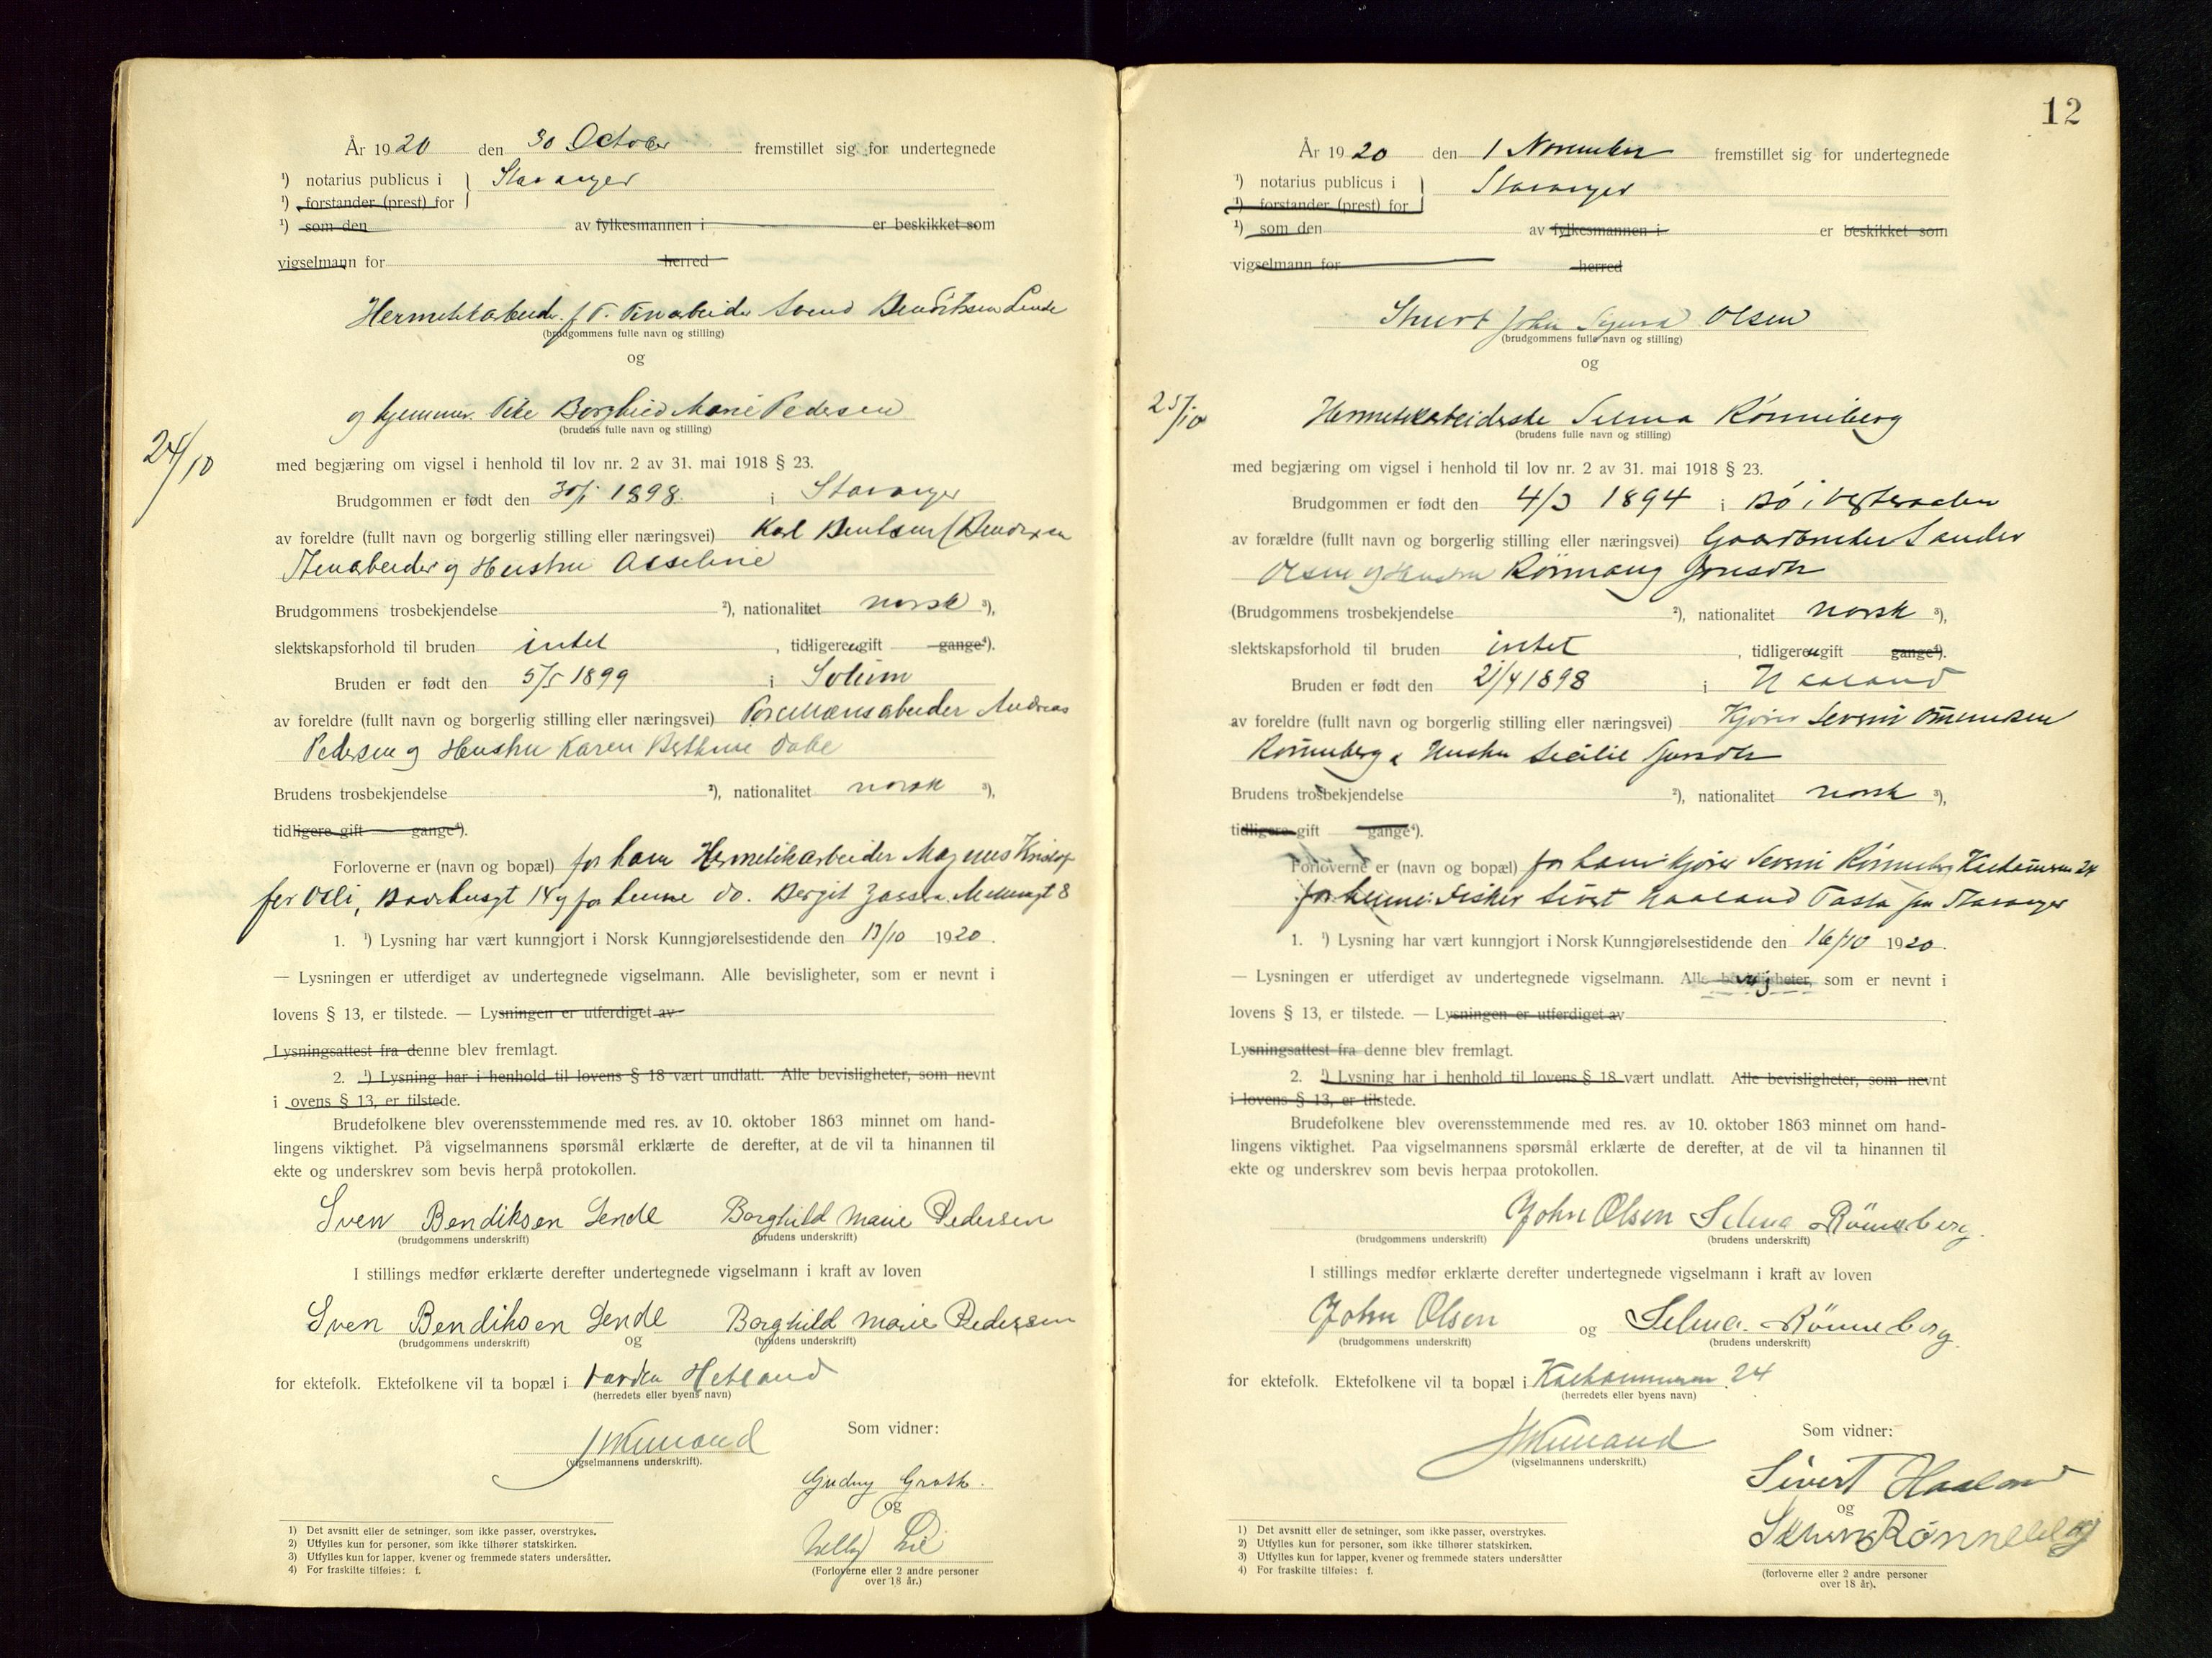 År 1920 den 30 October fremstillet sig for undertegnede
¹) notarius publicus i Stavanger
¹) forstander (prest) for
¹) som den av fylkesmannen i er beskikket som
vigselmann for herred
Hermetikarbeider f. T. Stenarbeider Svend Bendiksen Lende
(brudgommens fulle navn og stilling)
og
og hjemmev. Pike Borghild Marie Pedersen
(brudens fulle navn og stilling)
24/10
med begjæring om vigsel i henhold til lov nr. 2 av 31. mai 1918 § 23.
Brudgommen er født den 1898 i Stavanger
av foreldre (fullt navn og borgerlig stilling eller næringsvei) Karl Bentsen (Bendixen
Stenarbeider og Hustru Asseline
Brudgommens trosbekjendelse ²), nationalitet norsk ³),
slektskapsforhold til bruden intet , tidligere ugift gange⁴).
Bruden er født den 5/5 1899 i Solum
av foreldre (fullt navn og borgerlig stilling eller næringsvei) Porcelænsarbeider Andreas
Pedersen og Hustru Karen Berthine
Brudens trosbekjendelse ²), nationalitet norsk ³),
tidligere gift gange⁴).
Forloverne er (navn og bopæl) for ham Hermetikarbeider Magnus Kristof
fer Olli, 14 og for henne do. Bergit 8
1. ¹) Lysning har vært kunngjort i Norsk Kunngjørelsestidende den 13/10 1920.
— Lysningen er utferdiget av undertegnede vigselmann. Alle bevisligheter, som er nevnt i
lovens § 13, er tilstede. — Lysningen er utferdiget av
Lysningsattest fra denne blev fremlagt.
2. ¹) Lysning har i henhold til lovens § 18 vært undlatt. Alle bevisligheter, som nevnt
i ovens § 13, er tilstede.
Brudefolkene blev overensstemmende med res. av 10. oktober 1863 minnet om hand-
lingens viktighet. På vigselmannens spørsmål erklærte de derefter, at de vil ta hinannen til
ekte og underskrev som bevis herpå protokollen.
Sven Bendiksen Lende Borghild Marie Pedersen
(brudgommens underskrift) (brudens underskrift)
I stillings medfør erklærte derefter undertegnede vigselmann i kraft av loven
Sven Bendiksen Lende Borghild Marie Pedersen
(brudgommens underskrift) og (brudens underskrift)
for ektefolk. Ektefolkene vil ta bopæl i Varden Hetland
(herredets eller byens navn)
Som vidner:
(vigselmannens underskrift).
Gudny Groth.
og
Lie
(Forloverne eller 2 andre personer
over 18 år.)
1) Det avsnitt eller de setninger, som ikke passer, overstrykes.
2) Utfylles kun for personer, som ikke tilhører statskirken.
3) Utfylles kun for lapper, kvener og fremmede staters undersåtter.
4) For fraskilte tilføies: f.
12
År 1920 den 1 November fremstillet sig for undertegnede
¹) notarius publicus i Stavanger
¹) forstander (prest) for
¹) som den av fylkesmannen i er beskikket som
vigselmann for herred
Stuert John Sigurd Olsen
(brudgommens fulle navn og stilling)
og
25/10
Hermetikarbeiderske Selma Rønneberg
(brudens fulle navn og stilling)
med begjæring om vigsel i henhold til lov nr. 2 av 31. mai 1918 § 23.
Brudgommen er født den 4/3 1894 i Bø i Vesteraalen
av forældre (fullt navn og borgerlig stilling eller næringsvei) Gaardbruker Sander
Olsen og Hustru Rønnaug Jonsdtr
(Brudgommens trosbekjendelse ²), nationalitet norsk ³),
slektskapsforhold til bruden intet , tidligere ugift gange⁴).
Bruden er født den 21/4 1898 i Haaland
av foreldre (fullt navn og borgerlig stilling eller næringsvei) Kjører Severin Omundsen
Rønneberg & Hustru Secilie
Brudens trosbekjendelse ²), nationalitet norsk ³),
tidligere gift gange⁴).
Forloverne er (navn og bopæl) for ham: Kjører Severin Rønneberg Kalhammeren 24
for henne: Fisker Sivert Haaland Tasta pr Stavanger
1. ¹) Lysning har vært kunngjort i Norsk Kunngjørelsestidende den 16/10 1920.
— Lysningen er utferdiget av undertegnede vigselmann. Alle bevisligheter, som er nevnt i
lovens § 13, er tilstede. — Lysningen er utferdiget av
Lysningsattest fra denne blev fremlagt.
2. ¹) Lysning har i henhold til lovens § 18 vært undlatt. Alle bevisligheter, som nevnt
i lovens § 13, er tilstede.
Brudefolkene blev overensstemmende med res. av 10. oktober 1863 minnet om hand-
lingens viktighet. Paa vigselmannens spørsmål erklærte de derefter, at de vil ta hinannen til
ekte og underskrev som bevis herpaa protokollen.
John Olsen Selma Rønneberg.
(brudgommens underskrift) (brudens underskrift)
I stillings medfør erklærte derefter undertegnede vigselmann i kraft av loven
John Olsen og Selma. Rønneberg
(brudgommens underskrift) (brudens underskrift)
for ektefolk. Ektefolkene vil ta bopæl i Kalhammeren 24
(herredets eller byens navn)
Som vidner:
(vigselmannens underskrift.)
Sivert Haaland
og
Rønneberg
(forloverne eller 2 andre personer
over 18 år).
1) Det avsnitt eller de setninger, som ikke passer, overstrykes.
2) Utfylles kun for personer, som ikke tilhører statskirken.
3) Utfylles kun for lapper, kvener og fremmede staters undersåtter
4) For fraskilte tilføies: f.